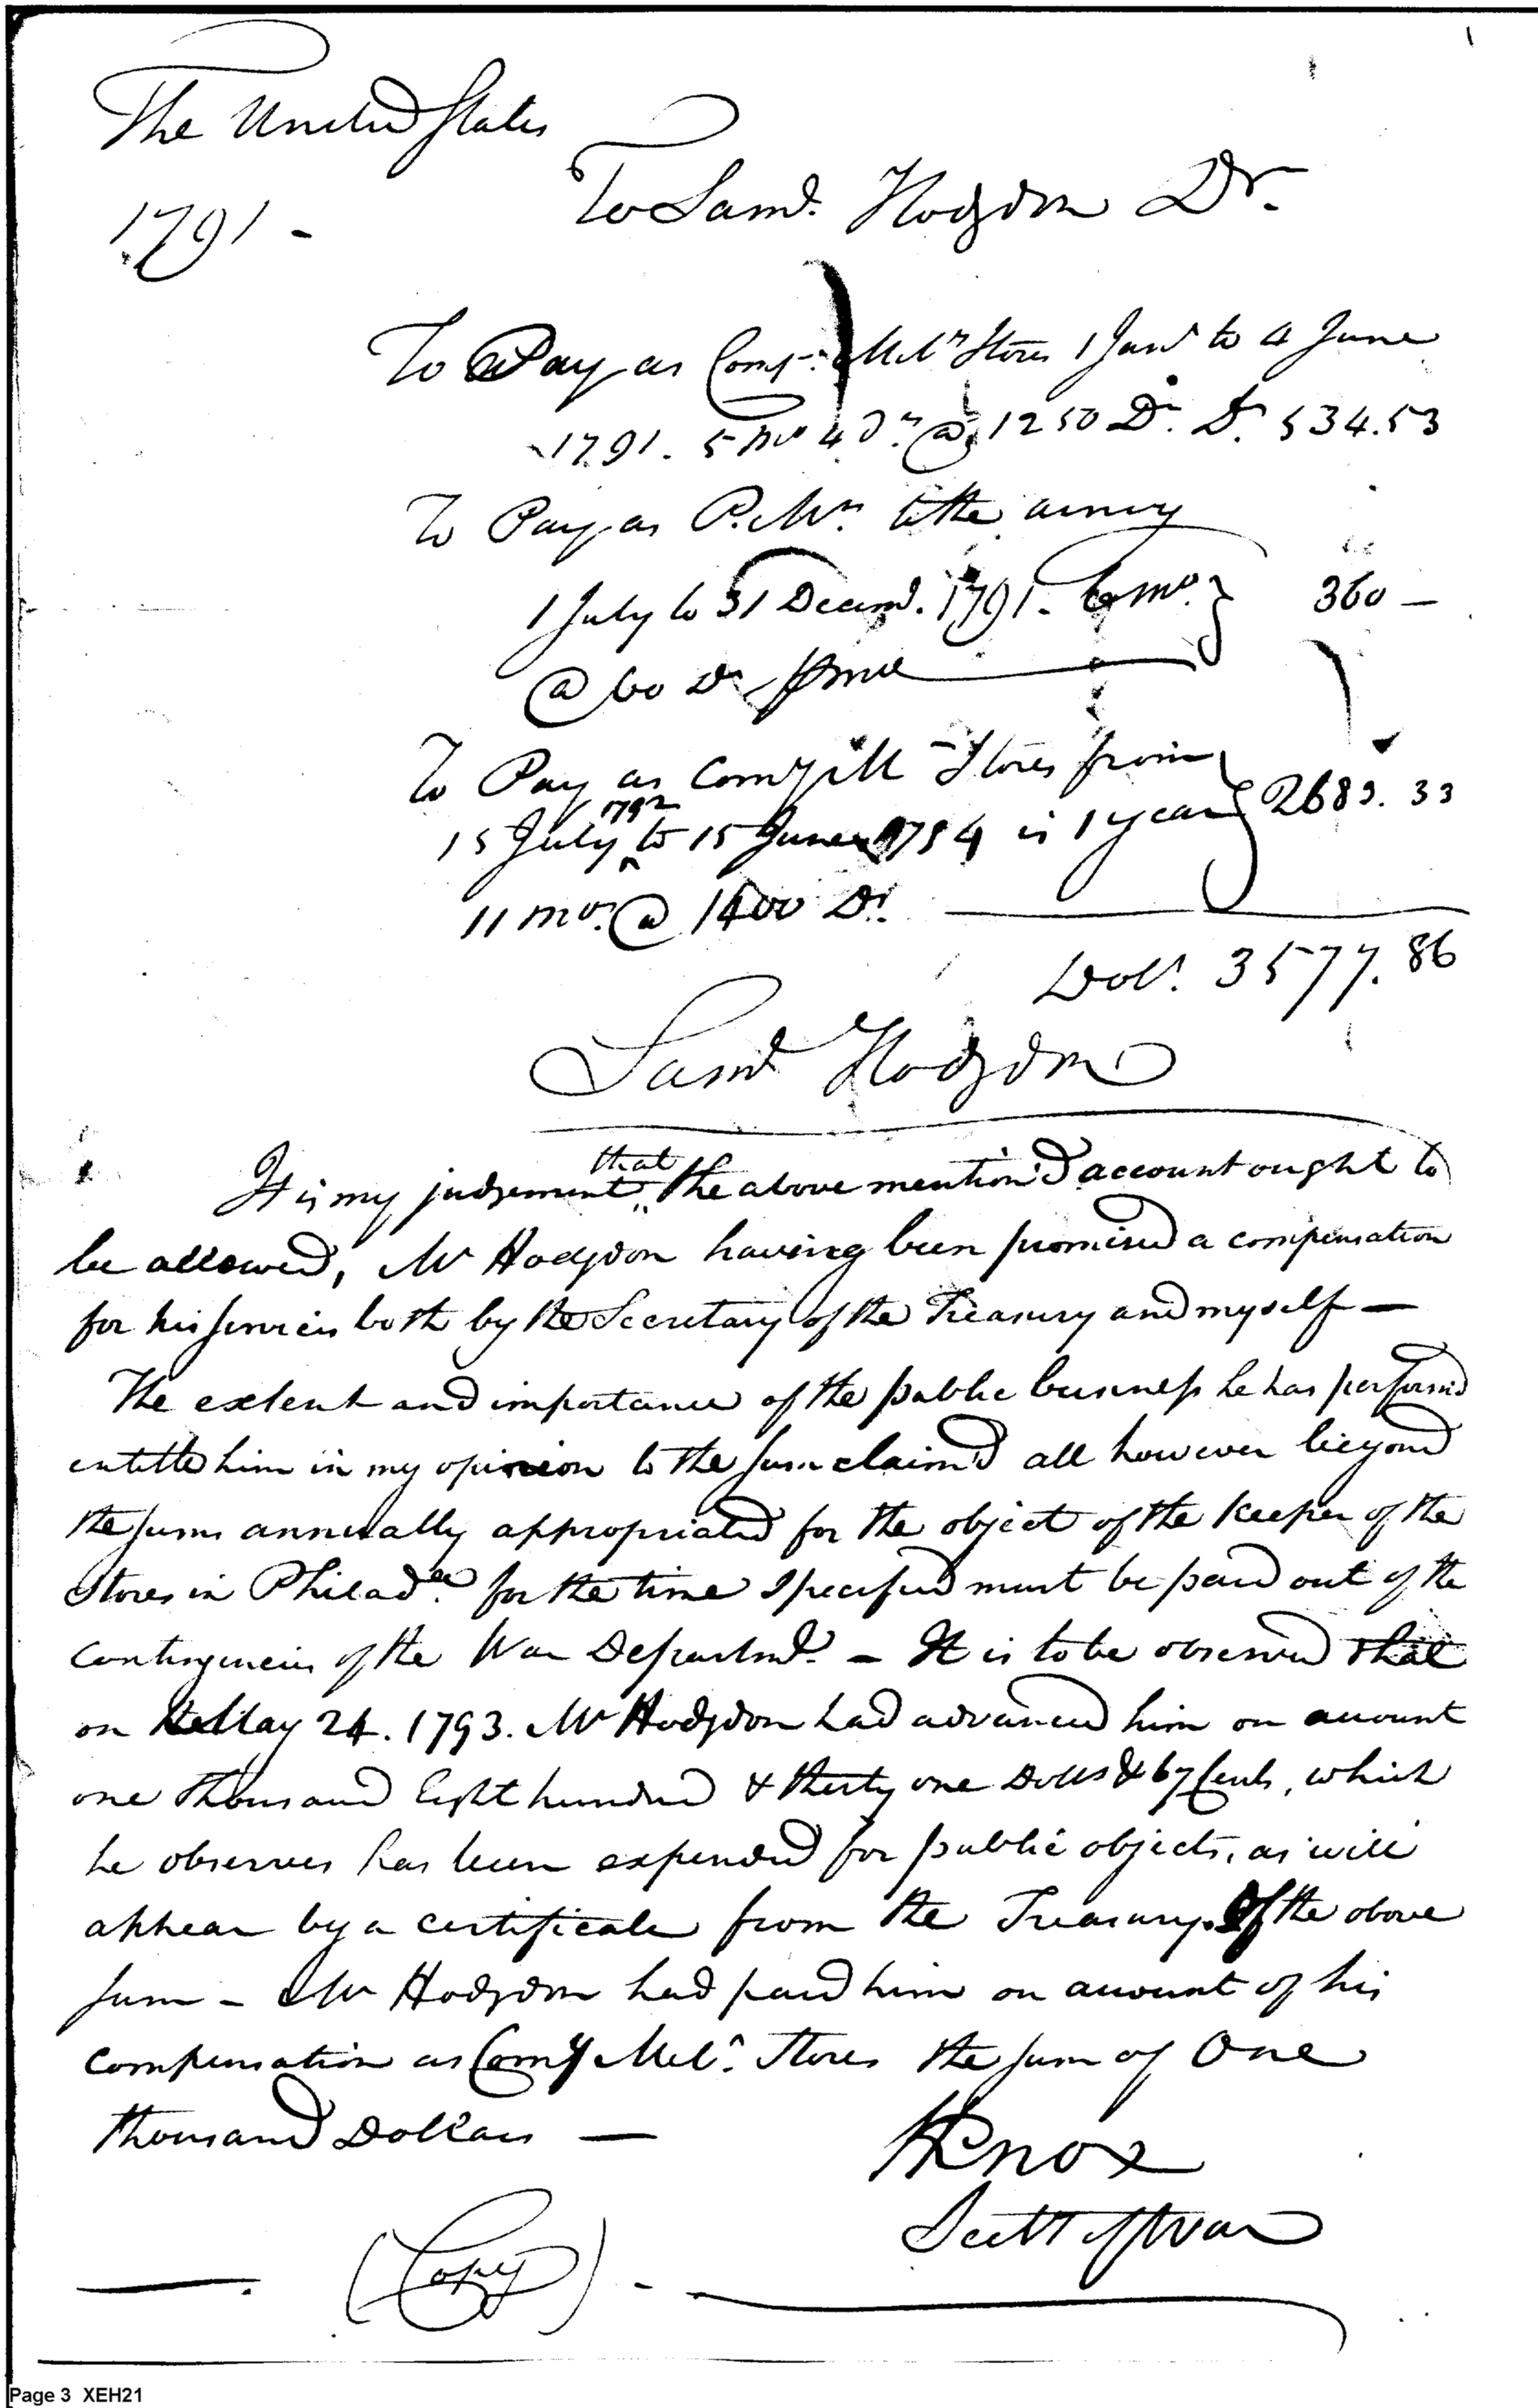 The United States
To Saml. Hodgdon Dr.
1791 -
To Pay as Comy. Mily Stores 1 Jany to 4 June
1791. 5 mo 4 Ds. @ 1250 Dr. Ds. 534.53
To Pay as Q. Mr. to the army
1 July to 31 Decemr. 1791. 6 mo. } 360 —
@ 60 Ds pr mo
To Pay as Comy Mil Stores from
15 July 1792 to 15 June 1794 is 1 year } 2683.33
11 mos. @ 1400 Ds.
Dolls. 3577.86
Saml Hodgdon
It is my judgement that the above mention'd account ought to
be allowed, Mr Hodgdon having been promised a compensation
for his services both by the Secretary of the Treasury and myself —
The extent and importance of the public business he has perform'd
entitle him in my opinion to the sum claim'd all however beyond
the sums annually appropriated for the object of the Keeper of the
Stores in Philada. for the time specified must be paid out of the
contingencies of the War Departmt. - It is to be observed that
on the May 24. 1793. Mr Hodgdon had advanced him on account
one thousand Eight hundred & thirty one Dolls & 67 Cents, which
he observes has been expended for public objects, as will
appear by a certificate from the Treasury. Of the above
sum - Mr Hodgdon had paid him on account of his
compensation as Comy Mily. Stores the sum of One
thousand Dollars —
HKnox
Secy of War
(Copy)
Page 3 XEH21